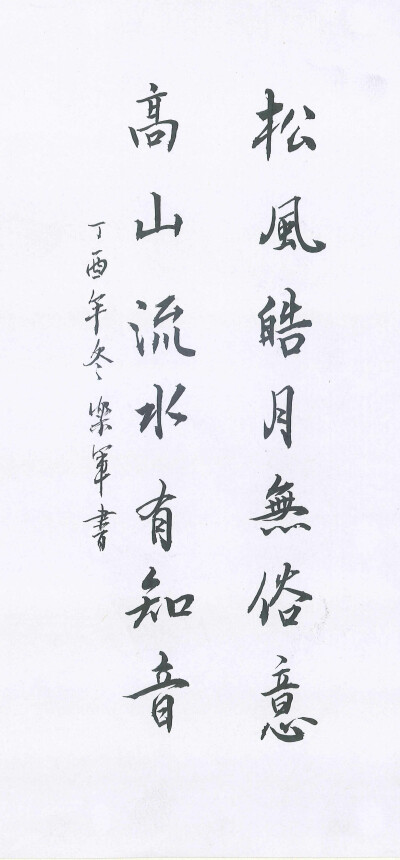 松風皓月無俗意
高山流水有知音
丁酉年冬樂軍書